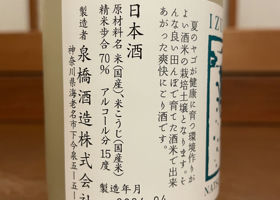 IZ
夏のヤゴが健康に育つ環境作りが
よい酒米の栽培土壌となります。そ
んな良い田んぼで育てた酒米で出来
あがった爽快にごり酒です。
NATS
日本酒
原材料名 米(国産)、米こうじ(国産米)
精米歩合70% アルコール分15度
製造者 泉橋酒造株式会
神奈川県海老名市下今泉5-5-
製造年月